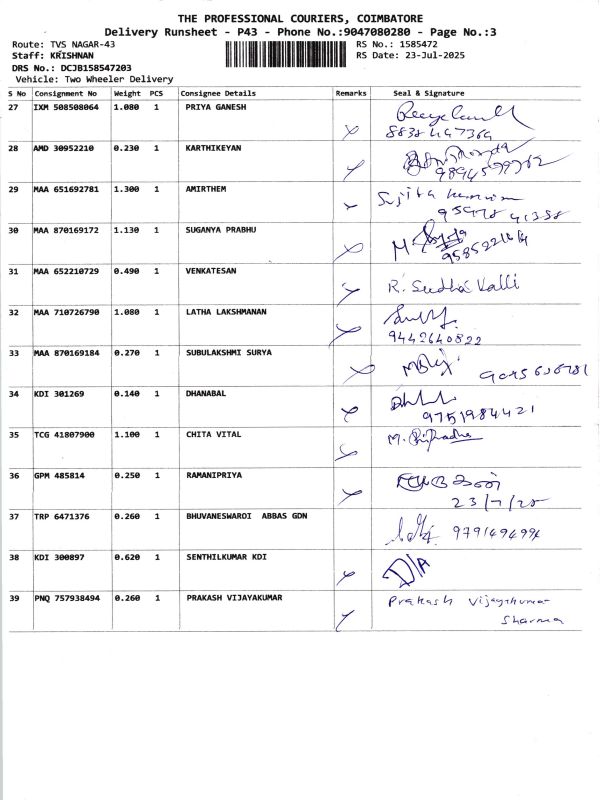 THE PROFESSIONAL COURIERS, COIMBATORE
Delivery Runsheet - P43 - Phone No.:9047080280 - Page No.:3
Route: TVS NAGAR-43 RS No.: 1585472
Staff: KRISHNAN RS Date: 23-Jul-2025
DRS No.: DCJB158547203
Vehicle: Two Wheeler Delivery
S No Consignment No Weight PCS Consignee Details Remarks Seal & Signature
27 IXM 508508064 1.080 1 PRIYA GANESH
28 AMD 30952210 0.230 1 KARTHIKEYAN
29 MAA 651692781 1.300 1 AMIRTHEM Sujitha
30 MAA 870169172 1.130 1 SUGANYA PRABHU
31 MAA 652210729 0.490 1 VENKATESAN R. Sudha Valli
32 MAA 710726790 1.080 1 LATHA LAKSHMANAN
9442640822
33 MAA 870169184 0.270 1 SUBULAKSHMI SURYA
34 KDI 301269 0.140 1 DHANABAL
9751984421
35 TCG 41807900 1.100 1 CHITA VITAL
36 GPM 485814 0.250 1 RAMANIPRIYA
23/7/25
37 TRP 6471376 0.260 1 BHUVANESWAROI ABBAS GDN
38 KDI 300897 0.620 1 SENTHILKUMAR KDI D/A
39 PNQ 757938494 0.260 1 PRAKASH VIJAYAKUMAR Prakash Vijaykumar
Sharma